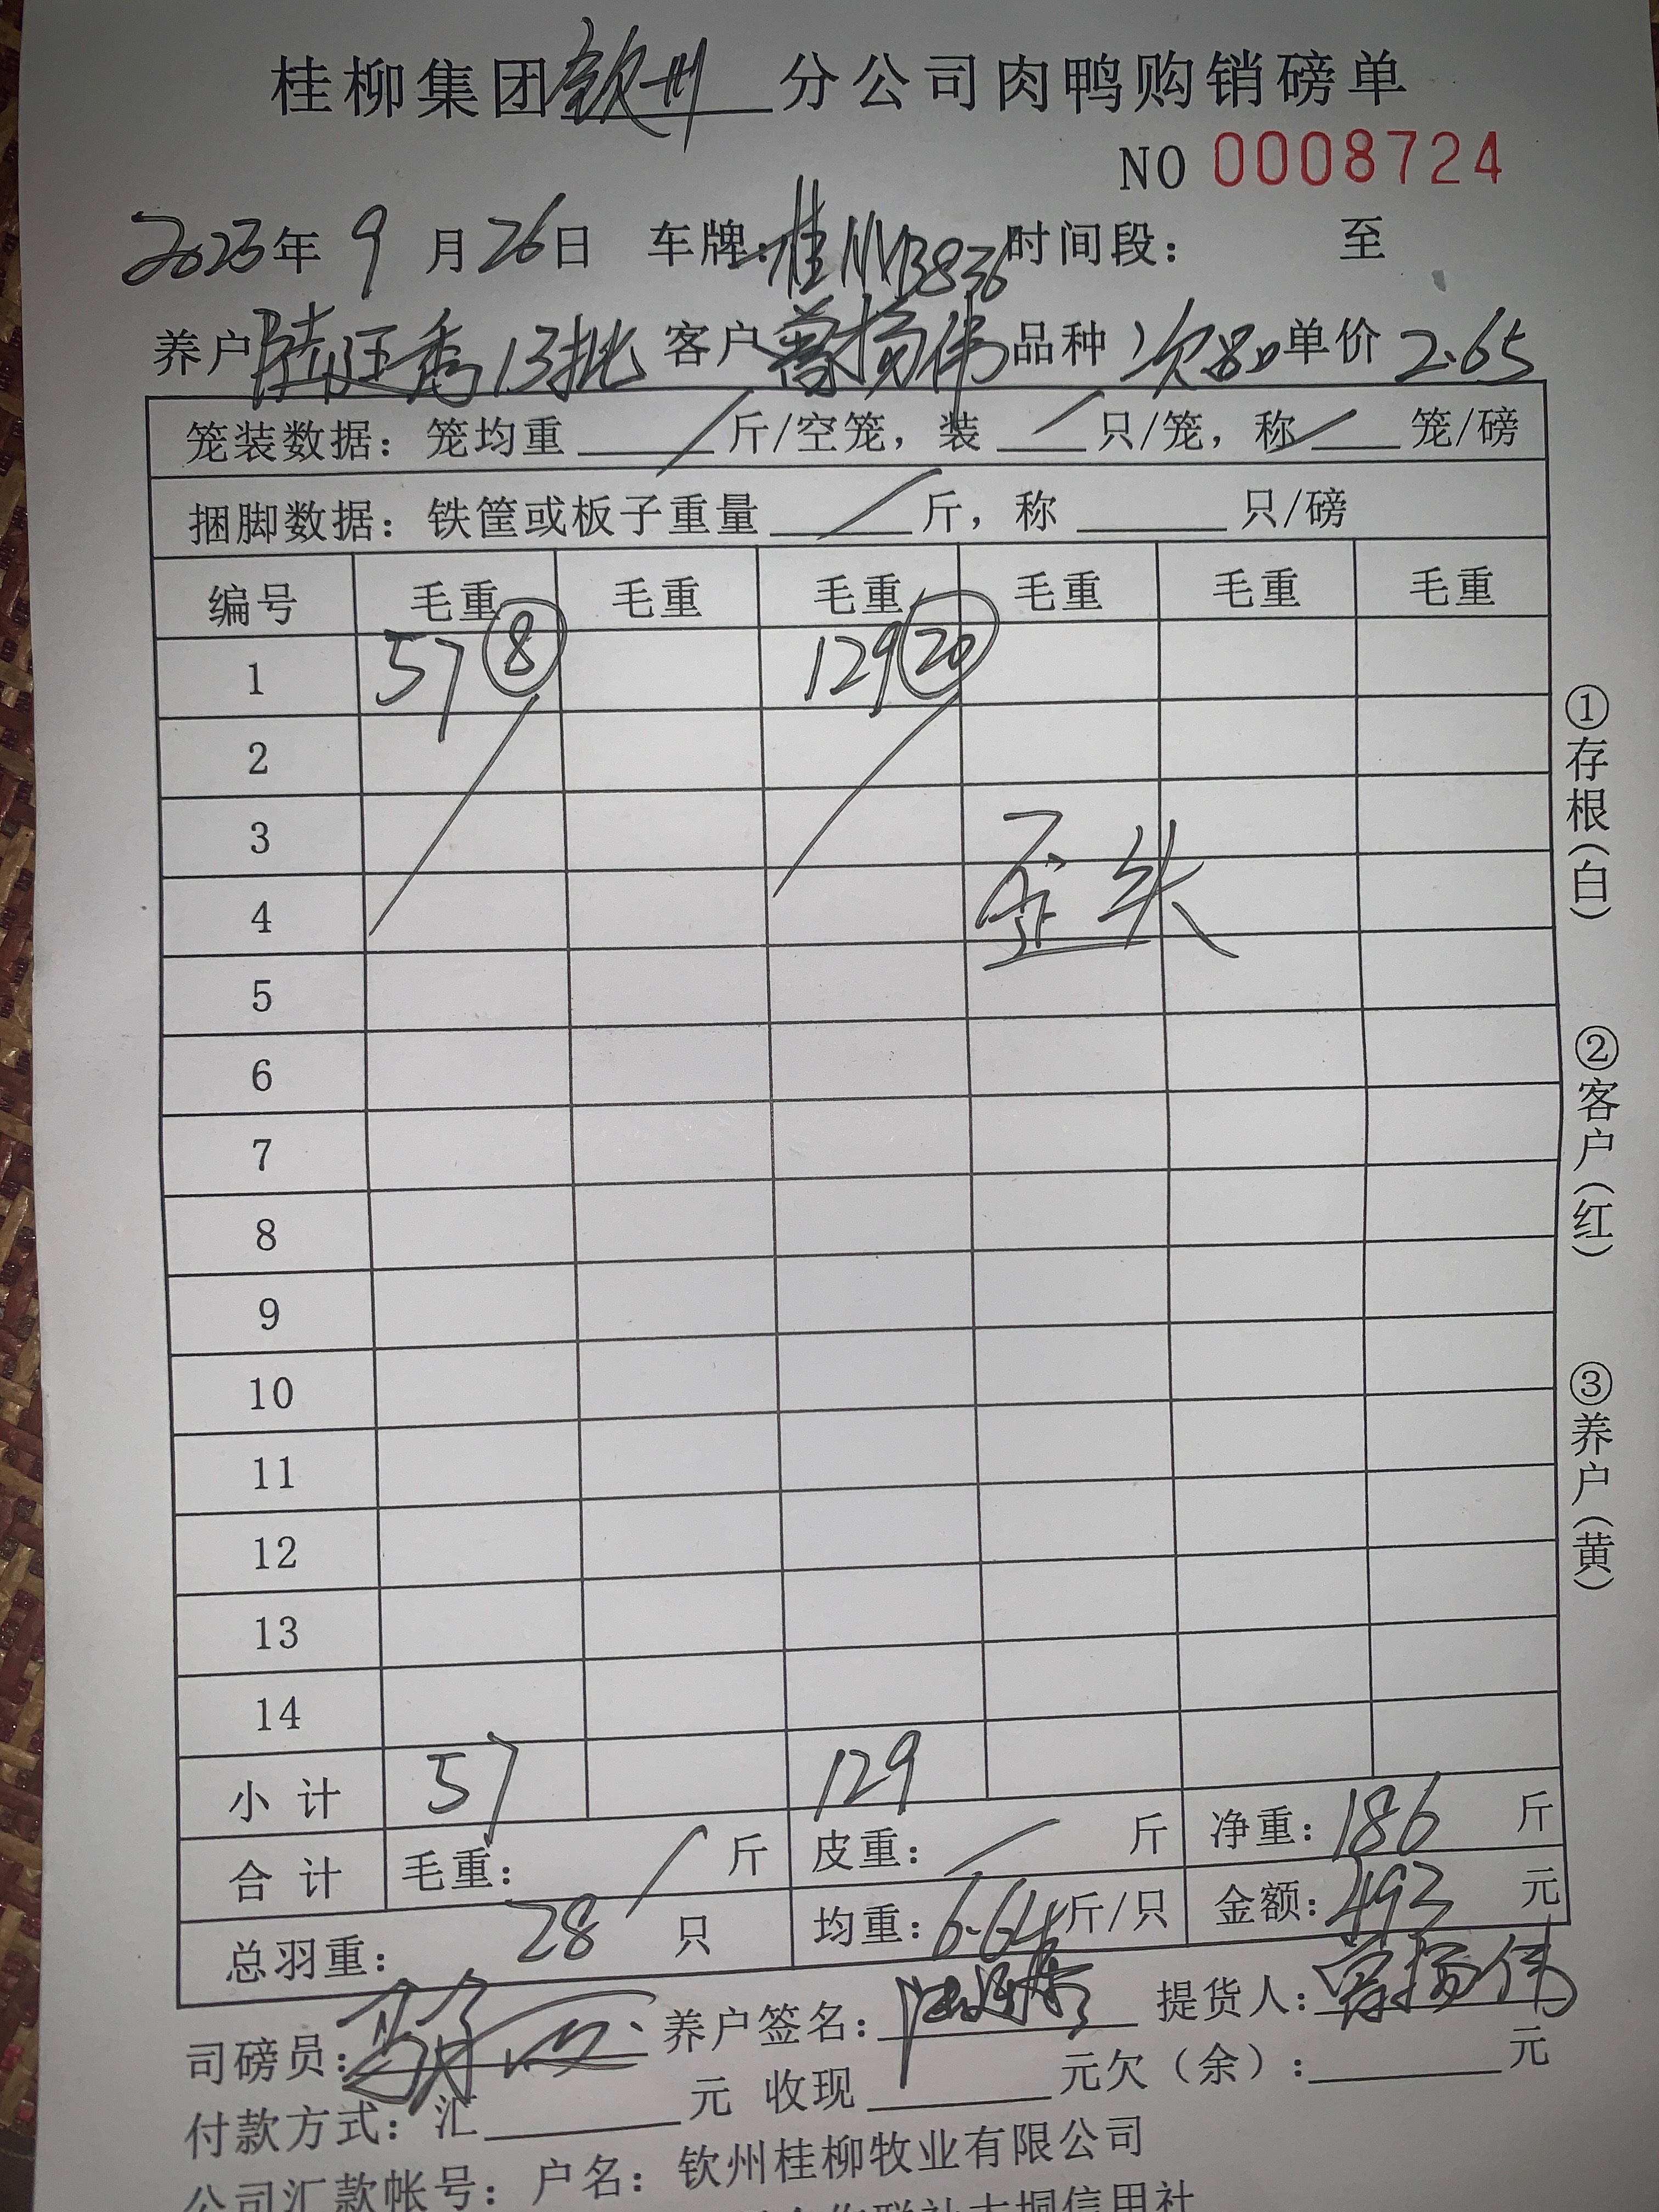 桂柳集团钦州分公司肉鸭购销磅单
NO 0008724
2023年 9 月 26日 车牌: 桂 时间段: 至
养户 陆旺秀 13批 客户 曾扬伟 品种 次 单价 2.65
笼装数据: 笼均重 / 斤/空笼, 装 / 只/笼, 称 / 笼/磅
捆脚数据: 铁筐或板子重量 / 斤, 称 只/磅
编号 毛重 毛重 毛重 毛重 毛重 毛重
1 57 ⑧ 129 ⑳
2
3
4 歪头
5
6
7
8
9
10
11
12
13
14
小计 57 129
合计 毛重: / 斤 皮重: / 斤 净重: 186 斤
总羽重: 28 只 均重: 6.64 斤/只 金额: 493 元
司磅员: 养户签名: 提货人: 曾扬伟
付款方式: 汇 元 收现 元欠(余): 元
公司汇款帐号: 户名: 钦州桂柳牧业有限公司
信用社
①存根(白)
②客户(红)
③养户(黄)